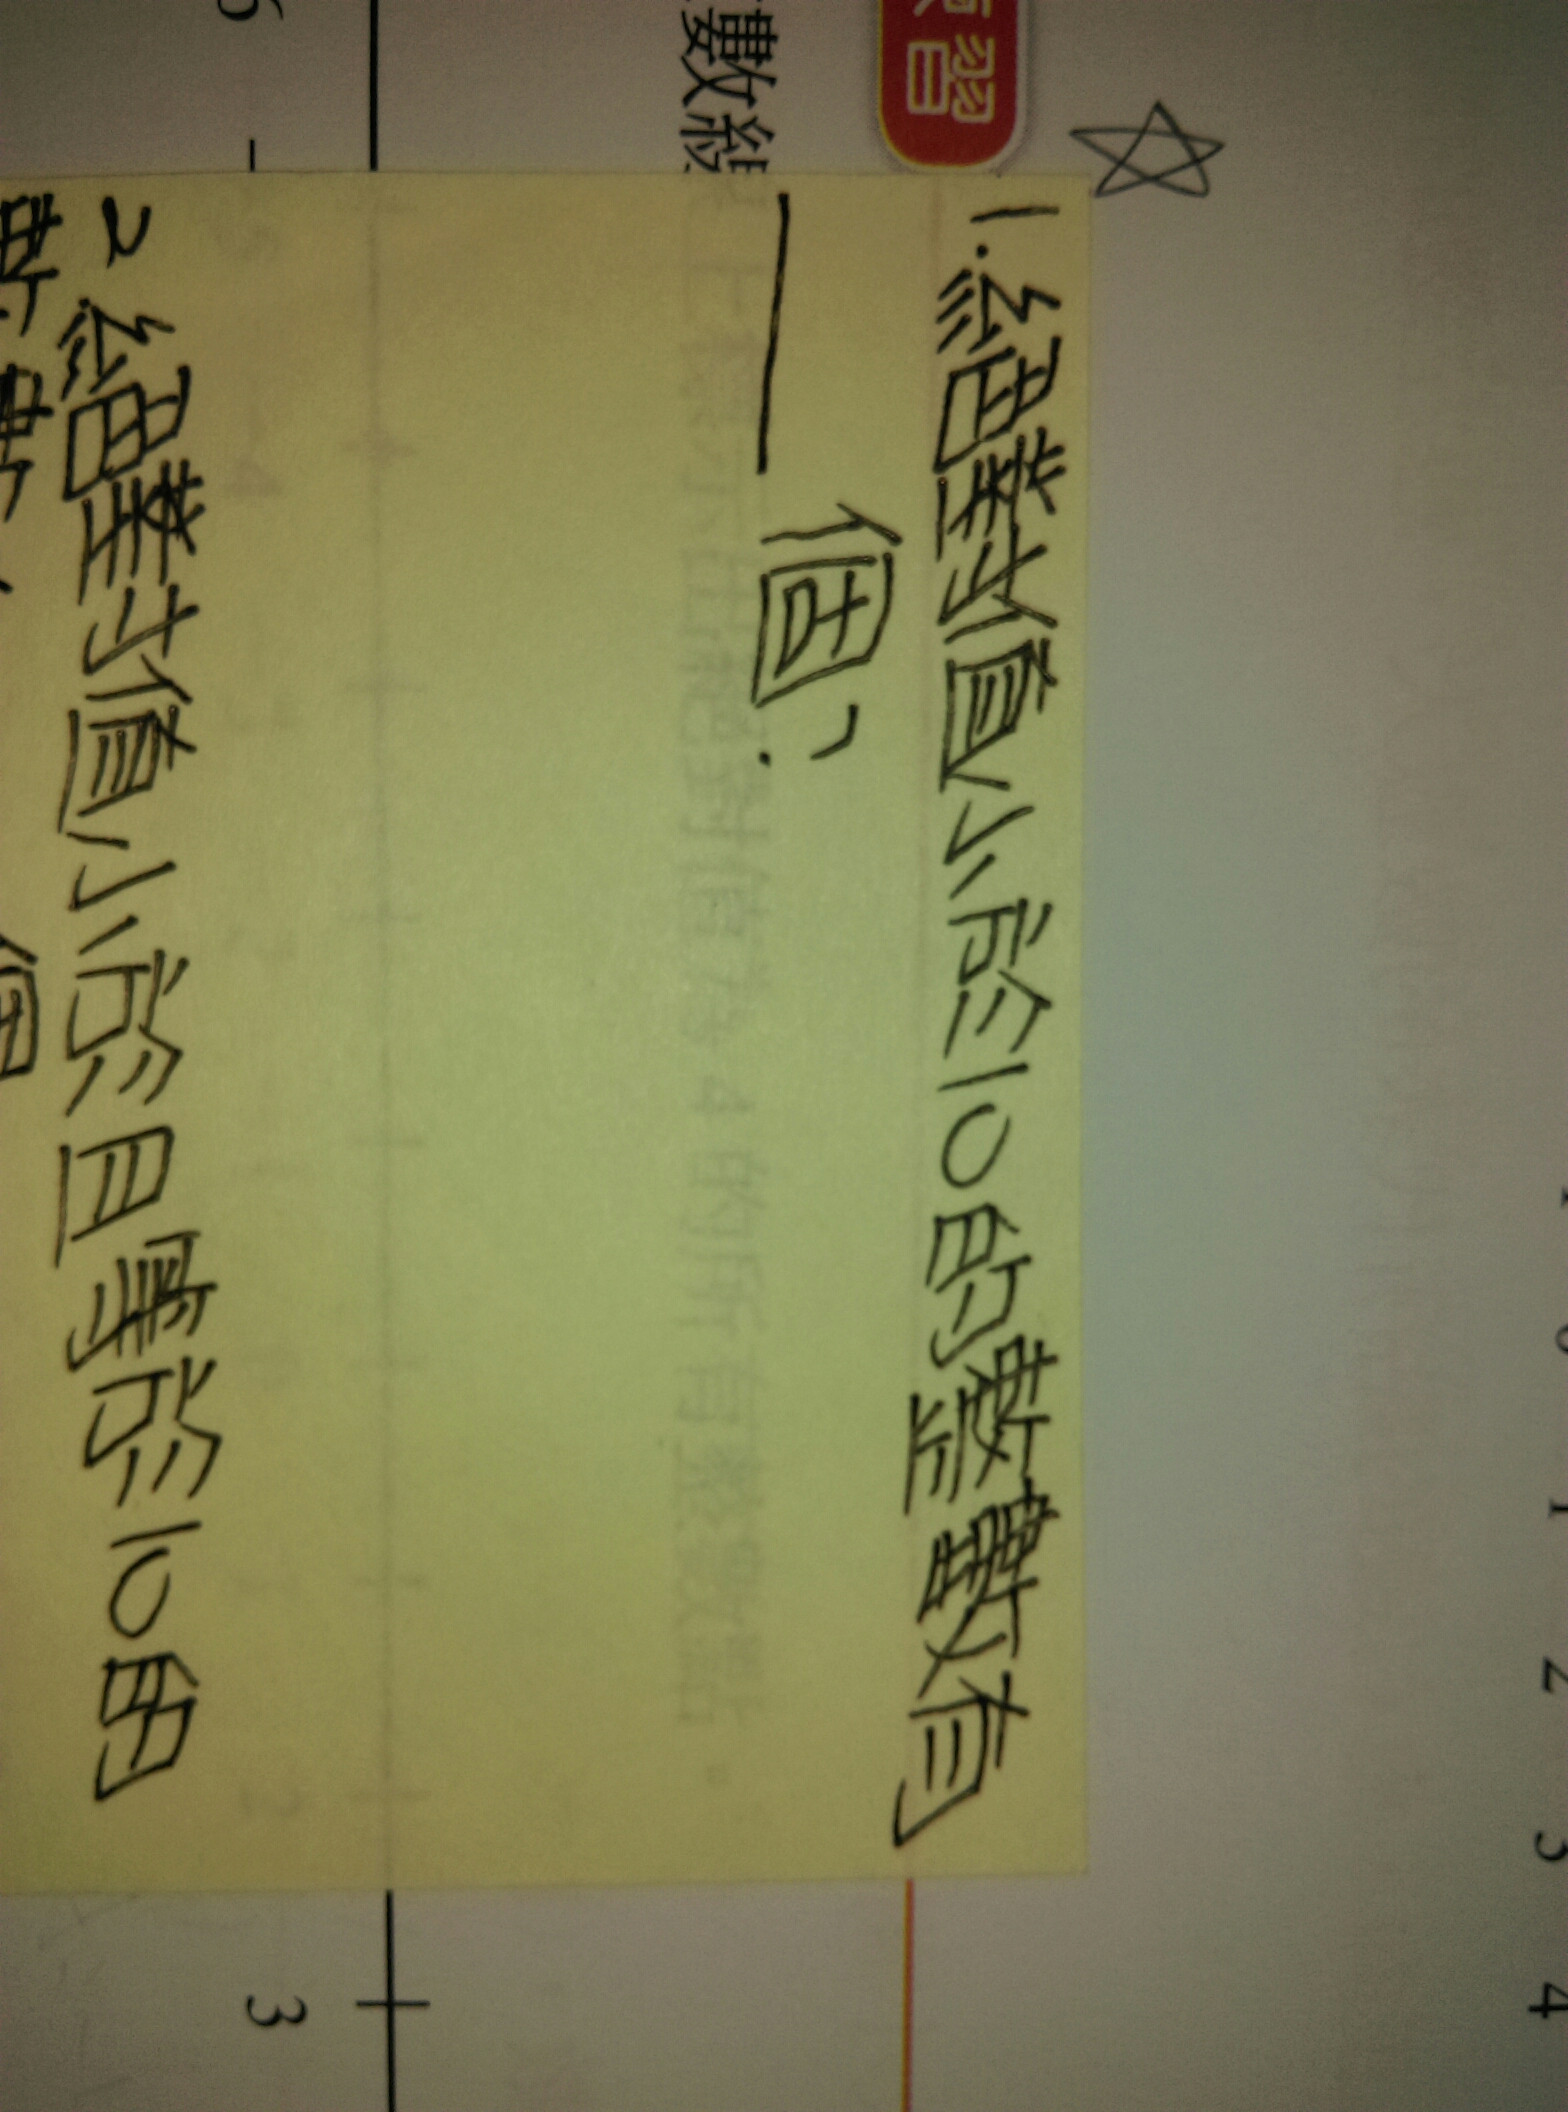 習
數線上標示出絕對值為 4 的所有整數點。
1.絕對值小於10的整數有
___個。
2.絕對值小於且等於10的
整數
個
3
1 0 1 2 3 4